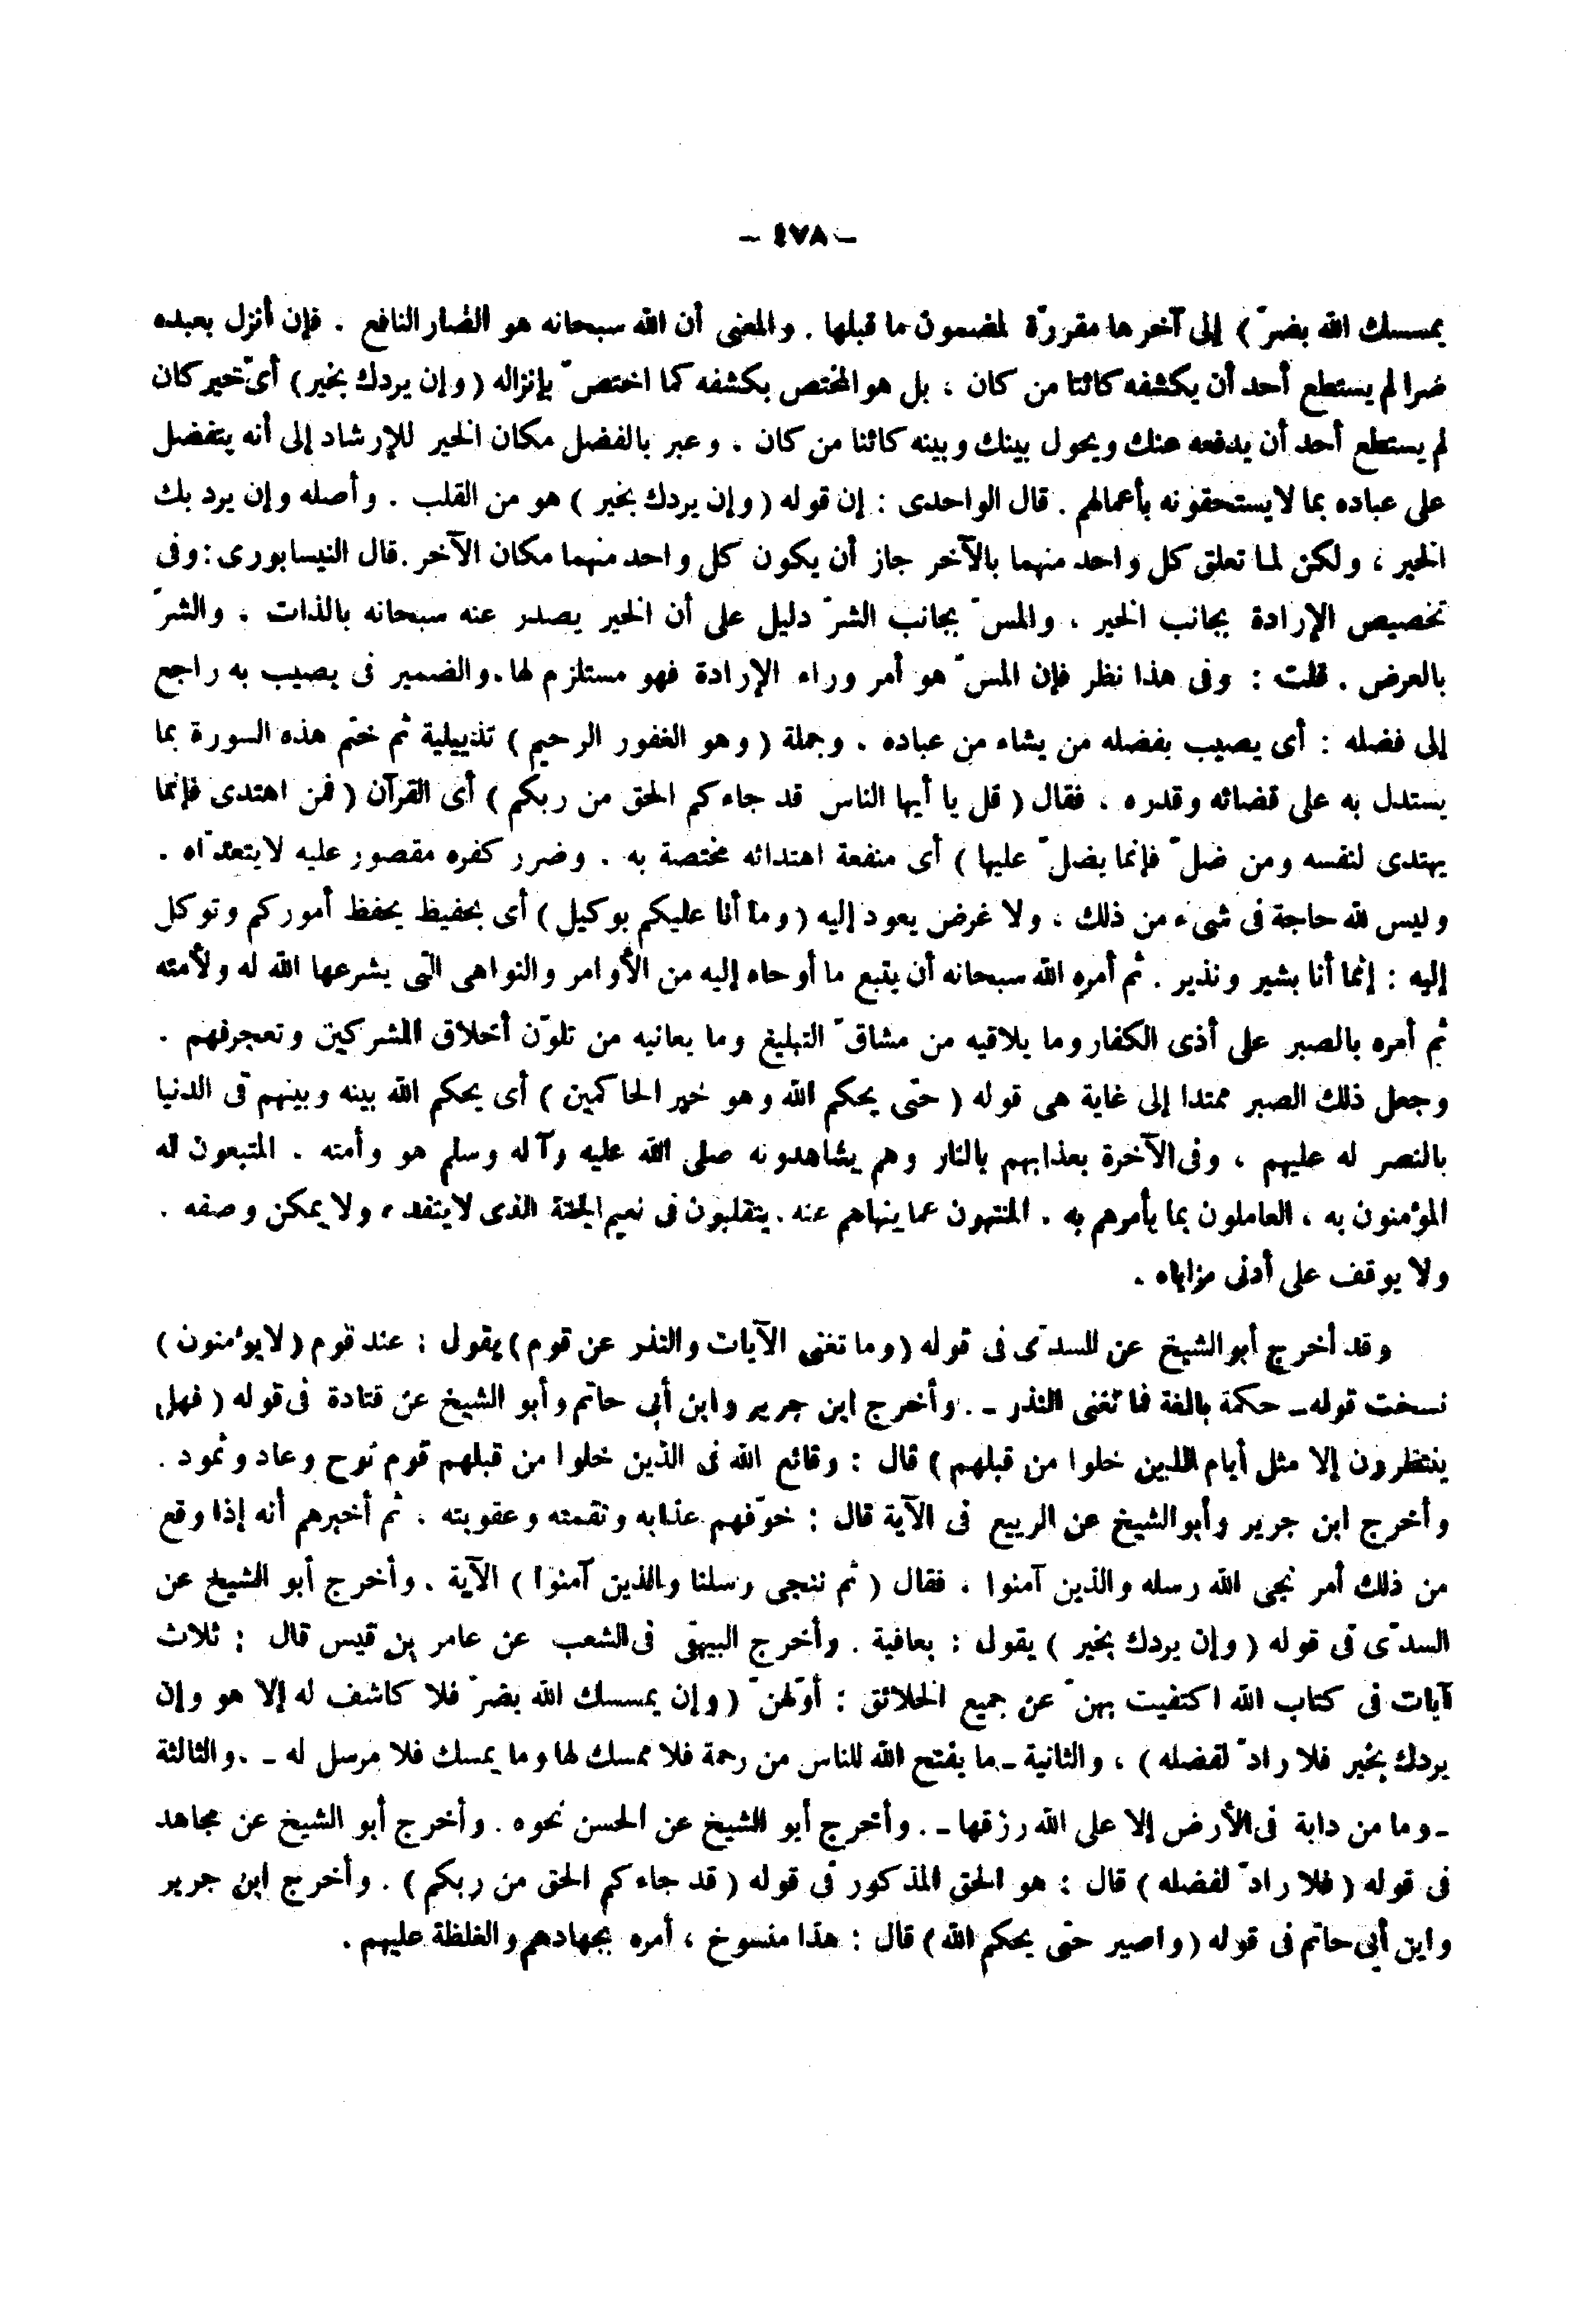 - ٤٧٨ -
يمسسك الله بضرّ ) إلى آخرها مقررّة لمضمون ما قبلها . والمعنى أن الله سبحانه هو الضار النافع . فإن أنزل بعبده
ضرا لم يستطع أحد أن يكشفه كائنا من كان ، بل هو المختص بكشفه كما اختصّ بإنزاله ( وإن يردك بخير ) أىّ خير كان
لم يستطع أحد أن يدفعه عنك ويحول بينك وبينه كائنا من كان . وعبر بالفضل مكان الخير للإرشاد إلى أنه يتفضل
على عباده بما لايستحقونه بأعمالهم . قال الواحدى : إن قوله ( وإن يردك بخير ) هو من القلب . وأصله وإن يرد بك
الخير ، ولكن لما تعلق كل واحد منهما بالآخر جاز أن يكون كل واحد منهما مكان الآخر . قال النيسابورى : وفى
تخصيص الإرادة بجانب الخير ، والمسّ بجانب الشرّ دليل على أن الخير يصدر عنه سبحانه بالذات . والشرّ
بالعرض . قلت : وفى هذا نظر فإن المسّ هو أمر وراء الإرادة فهو مستلزم لها . والضمير فى يصيب به راجع
إلى فضله : أى يصيب بفضله من يشاء من عباده . وجملة ( وهو الغفور الرحيم ) تذييلية ثم ختم هذه السورة بما
يستدل به على قضائه وقدره ، فقال ( قل يا أيها الناس قد جاءكم الحق من ربكم ) أى القرآن ( فمن اهتدى فإنما
يهتدى لنفسه ومن ضلّ فإنما يضلّ عليها ) أى منفعة اهتدائه مختصة به . وضرر كفره مقصور عليه لايتعدّاه .
وليس لله حاجة فى شىء من ذلك ، ولا غرض يعود إليه ( وما أنا عليكم بوكيل ) أى بحفيظ يحفظ أموركم وتوكل
إليه : إنما أنا بشير ونذير . ثم أمره الله سبحانه أن يتبع ما أوحاه إليه من الأوامر والنواهى التى يشرعها الله له ولأمته
ثم أمره بالصبر على أذى الكفار وما يلاقيه من مشاقّ التبليغ وما يعانيه من تلوّن أخلاق المشركين وتعجرفهم .
وجعل ذلك الصبر ممتدا إلى غاية هى قوله ( حتى يحكم الله وهو خير الحاكمين ) أى يحكم الله بينه وبينهم فى الدنيا
بالنصر له عليهم ، وفى الآخرة بعذابهم بالنار وهم يشاهدونه صلى الله عليه وآله وسلم هو وأمته . المتبعون له
المؤمنون به ، العاملون بما يأمرهم به . المنتهون عما ينهاهم عنه . يتقلبون فى نعيم الجنة الذى لاينفد ، ولا يمكن وصفه .
ولا يوقف على أدنى مزاياه .
وقد أخرج أبو الشيخ عن السدّى فى قوله ( وما تغنى الآيات والنذر عن قوم ) يقول : عند قوم ( لايؤمنون )
نسخت قوله - حكمة بالغة فما تغنى النذر - . وأخرج ابن جرير وابن أبى حاتم وأبو الشيخ عن قتادة فى قوله ( فهل
ينتظرون إلا مثل أيام الذين خلوا من قبلهم ) قال : وقائع الله فى الذين خلوا من قبلهم قوم نوح وعاد وثمود .
وأخرج ابن جرير وأبو الشيخ عن الربيع فى الآية قال : خوّفهم عذابه ونقمته وعقوبته ، ثم أخبرهم أنه إذا وقع
من ذلك أمر نجى الله رسله والذين آمنوا ، فقال ( ثم ننجى رسلنا والذين آمنوا ) الآية . وأخرج أبو الشيخ عن
السدّى فى قوله ( وإن يردك بخير ) يقول : بعافية . وأخرج البيهقى فى الشعب عن عامر بن قيس قال : ثلاث
آيات فى كتاب الله اكتفيت بهنّ عن جميع الخلائق : أوّلهنّ ( وإن يمسسك الله بضرّ فلا كاشف له إلا هو وإن
يردك بخير فلا رادّ لفضله ) ، والثانية - ما يفتح الله للناس من رحمة فلا ممسك لها وما يمسك فلا مرسل له - . والثالثة
- وما من دابة فى الأرض إلا على الله رزقها - . وأخرج أبو الشيخ عن الحسن نحوه . وأخرج أبو الشيخ عن مجاهد
فى قوله ( فلا رادّ لفضله ) قال : هو الحق المذكور فى قوله ( قد جاءكم الحق من ربكم ) . وأخرج ابن جرير
وابن أبى حاتم فى قوله ( واصبر حتى يحكم الله ) قال : هذا منسوخ ، أمره بجهادهم والغلظة عليهم .